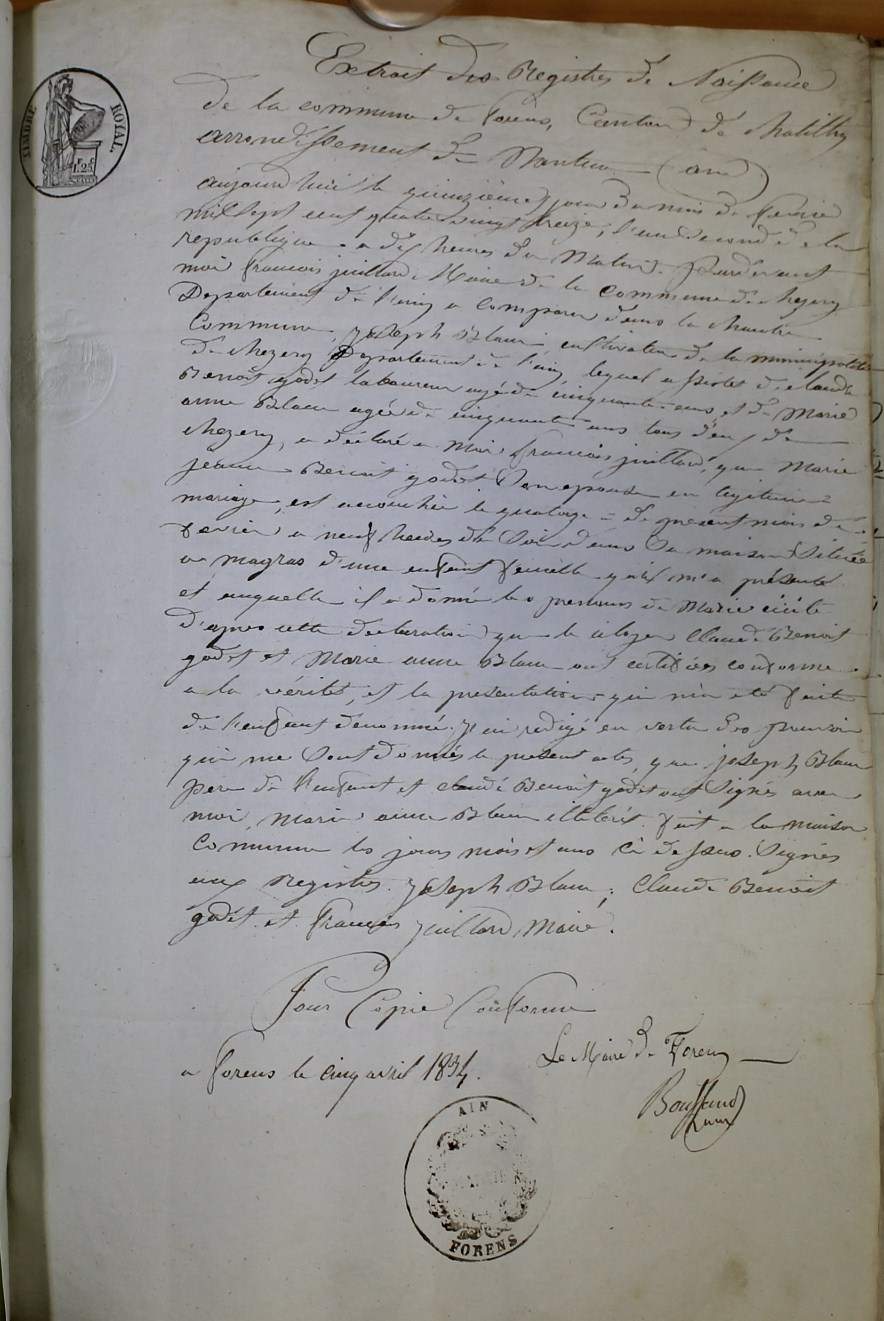 TIMBRE ROYAL.
1F 25c
Extrait des Registres de Naissance
de la commune de forens, Canton de Chatillon
arrondissement de Nantua (ain)
aujourd'hui le quinzième jour du mois de fevrie
mil sept cent quatre vingt treize, l'an second de la
republique a dix heures du Matin Pardevant
moi francois juillard Maire de la commune de chezery
Departement de l'ain a comparu dans la chambre
Commune, joseph Blanc, cultivateur de la municipalité
de chezery Departement de l'ain, lequel assisté de claude
Benoît godet laboureur agé de cinquante ans et de Marie
anne Blanc agée de cinquante ans tous deux de
chezery, a déclaré a Moi francois juillard, que Marie
jeanne Benoit godet Son epouse en legitime
mariage, est accouchée le quatorze de present mois de
fevrier a neuf heures du Soir dans Sa maison Située
a magras d'une enfant femelle qu'il m'a présenté
et auquelle il a donné les prenoms de Marie cécile
D'apres cette declaration que le citoyen Claude Benoit
godet et Marie anne Blanc ont certifiées conforme
a la vérité, et la presentation qui m'a été faite
de l'enfant denommé, j'ai redigé en vertu des pouvoirs
qui me Sont donnés le present acte, que joseph Blanc
pere de l'enfant et claude Benoit godet ont Signés avec
moi, Marie anne Blanc illeterée fait a la maison
Commune les jours mois et ans ci dessus. Signés
aux Registres. joseph Blanc, Claude Benoit
godet et François juillard, Maire.
Pour Copie Conforme
a forens le cinq avril 1834.
Le Maire de Forens
Bouffand
AIN
MAIRIE
FORENS